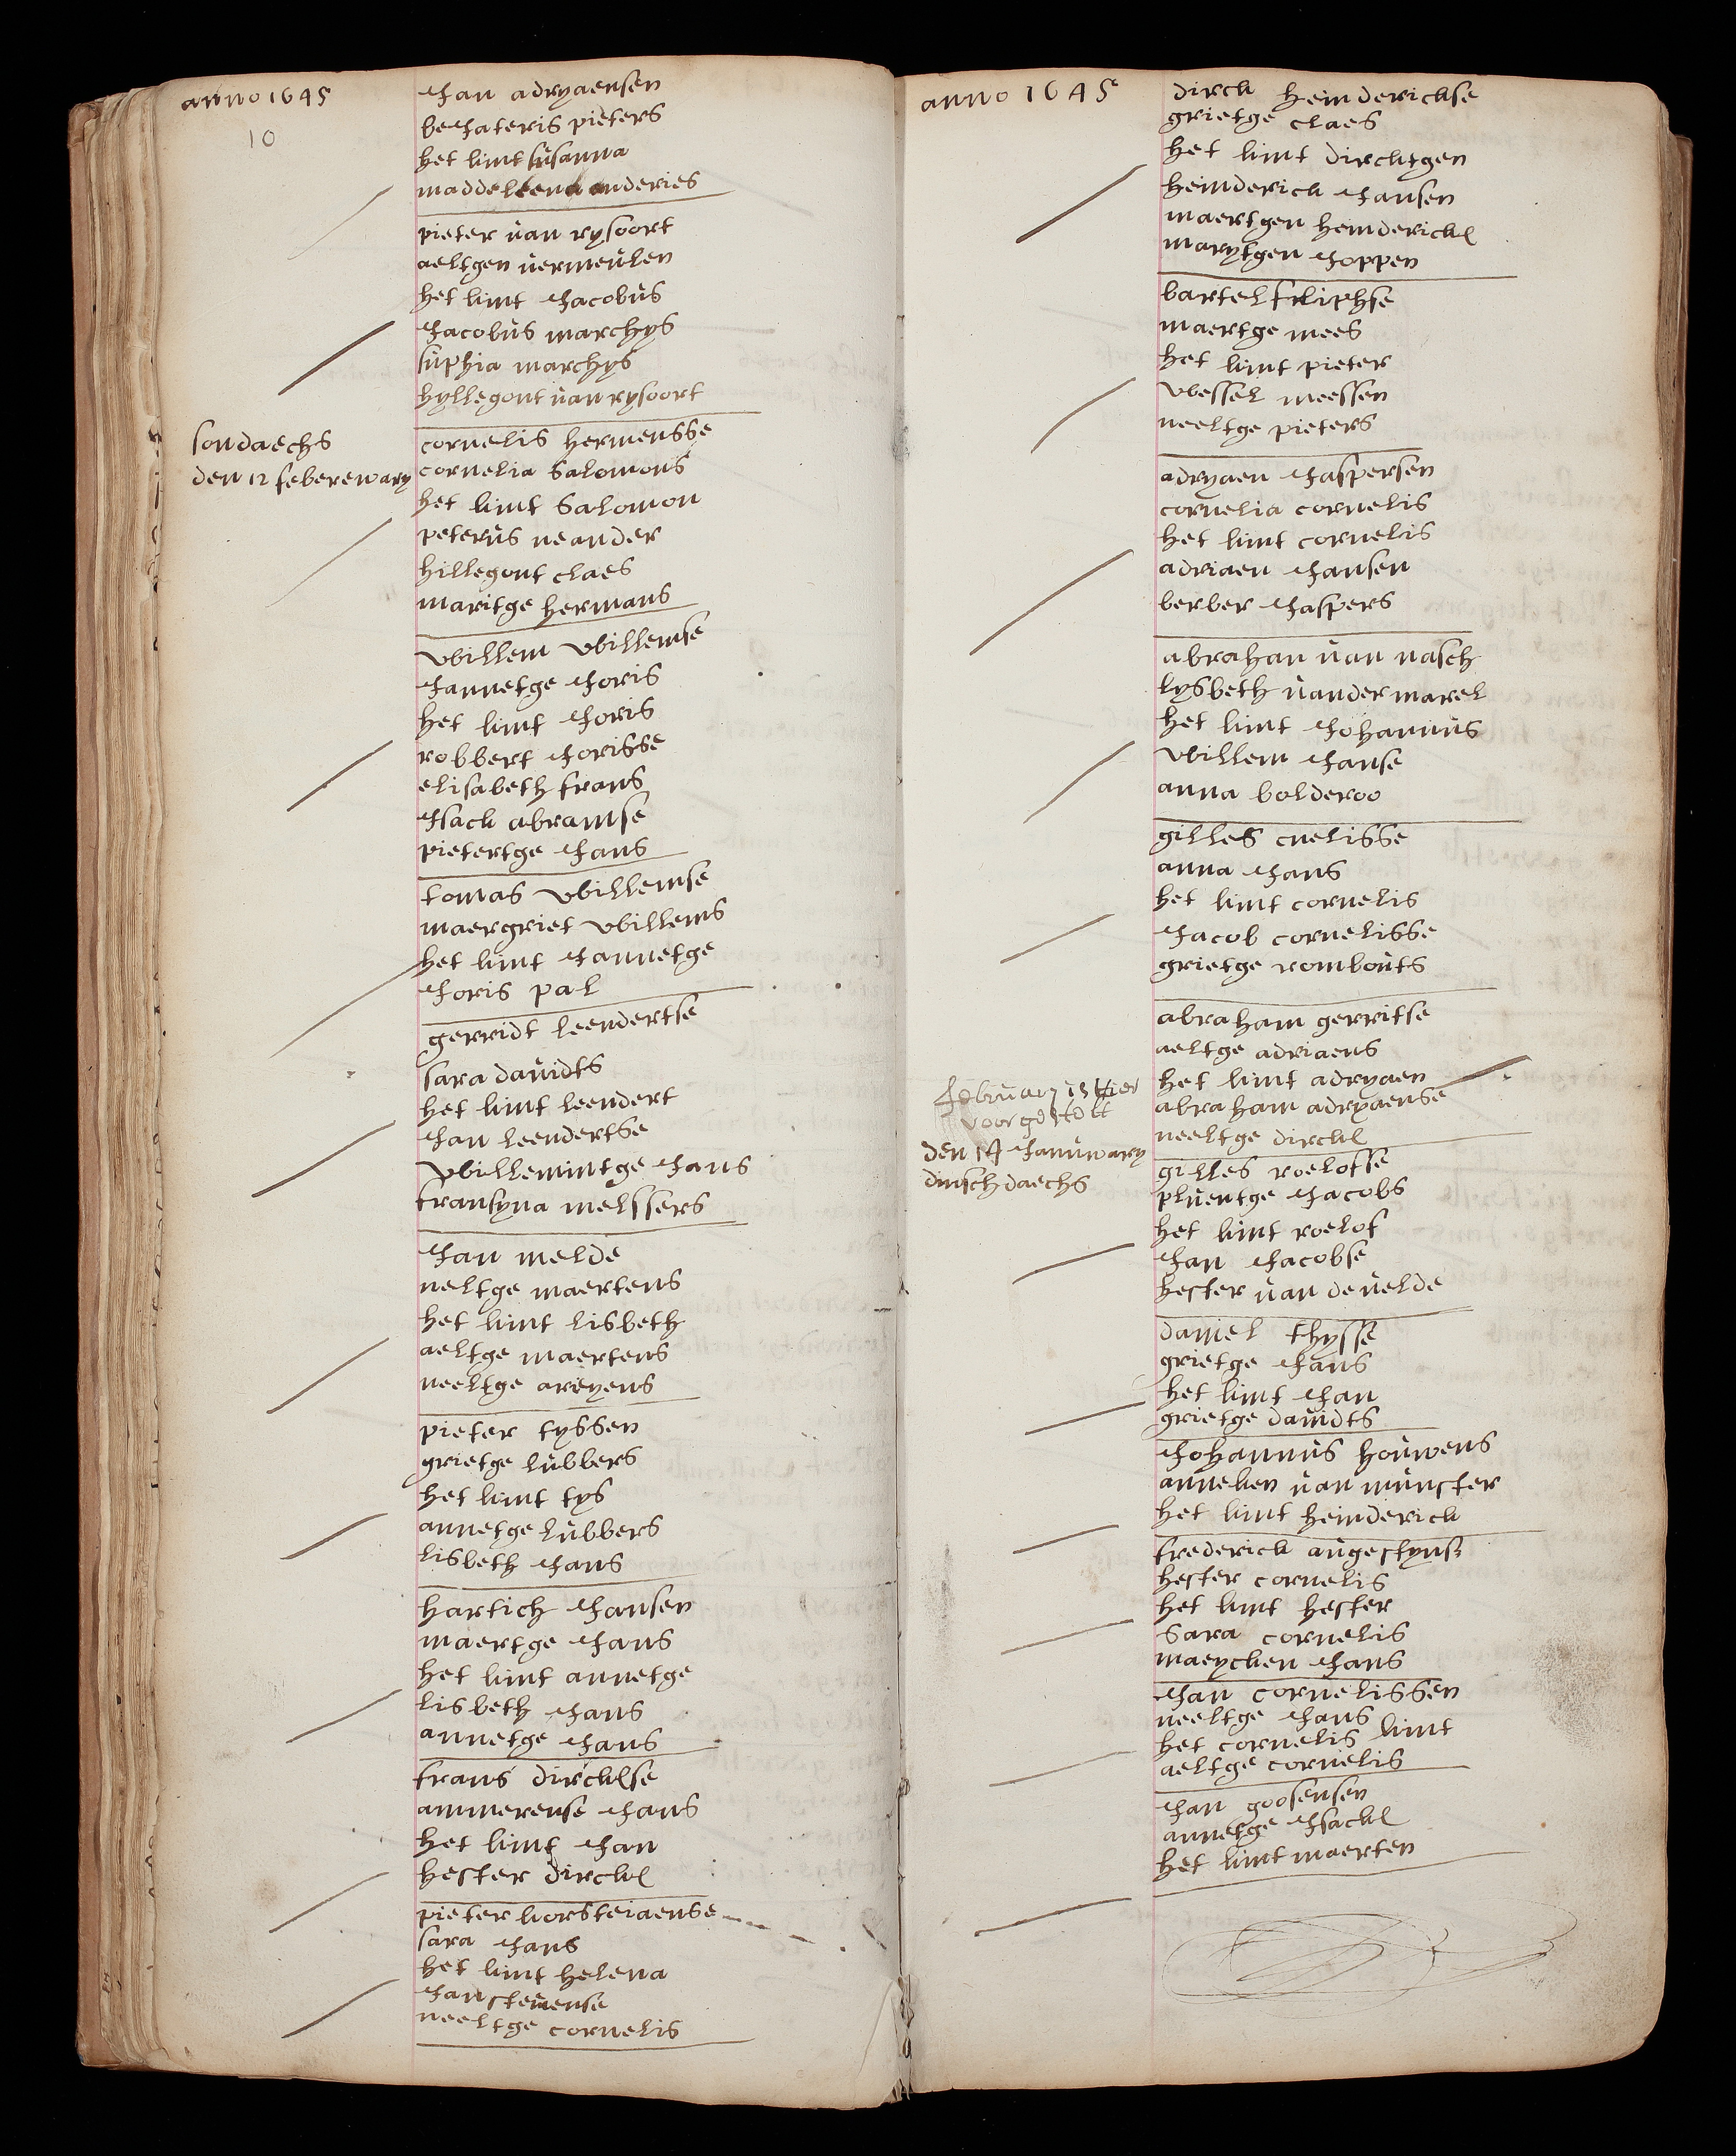 anno 1645
10
Jan adryaensen
beJateris pieters
het kint susanna
maddeleena anderies
pieter van rysoort
aeltgen vermeulen
het kint Jacobus
Jacobus marchys
suphia marchys
hyllegont van rysoort
sondaechs
den 12 feberewary
cornelis hermensse
cornelia Salomons
het kint Salomon
peterus neander
hillegont claes
maritge hermans
Willem Willemse
Jannetge Joris
het kint Joris
robbert Jorisse
elisabeth frans
Jsack abramse
pietertge Jans
tomas Willemse
maergriet Willems
het kint Jannetge
Joris pal
gerridt leendertse
sara davidts
het kint leendert
Jan leendertse
Willemintge Jans
fransyna melssers
Jan melde
neltge maertens
het kint lisbeth
aeltge maertens
neeltge areyens
pieter tyssen
grietge lubbers
het kint tys
annetge lubbers
lisbeth Jans
hartich Jansen
maertge Jans
het kint annetge
lisbeth Jans
annetge Jans
frans dirckse
ammerense Jans
het kint Jan
hester dircks
pieter korsteiaense
sara Jans
het kint helena
Jan stevense
neeltge cornelis
anno 1645
dirck heinderickse
grietge claes
het kint dircktgen
heinderick Jansen
maertgen heindericks
marytgen Joppen
bartel fliphse
maertge mees
het kint pieter
Wessel meessen
neeltge pieters
adryaen Jaspersen
cornelia cornelis
het kint cornelis
adriaen Jansen
berber Jaspers
abrahan van nasch
lysbeth vander marel
het kint Johannus
Willem Janse
anna bolderoo
gilles cnelisse
anna Jans
het kint cornelis
Jacob cornelisse
grietge rombouts
abraham gerritse
aeltge adriaens
het kint adryaen
abraham adryaense
neeltge dircks
february is hier
voorgestelt
den 14 Januwary
dinschdaechs
gilles roelofse
pluentge Jacobs
het kint roelof
Jan Jacobse
hester van de velde
daniel thysse
grietge Jans
het kint Jan
grietge davidts
Johannus houwens
anneken van munster
het kint heinderick
frederick augestyns
hester cornelis
het kint hester
Sara cornelis
maeycken Jans
Jan cornelissen
neeltge Jans
het cornelis kint
aeltge cornelis
Jan goosensen
annetge Jsacks
het kint maerten